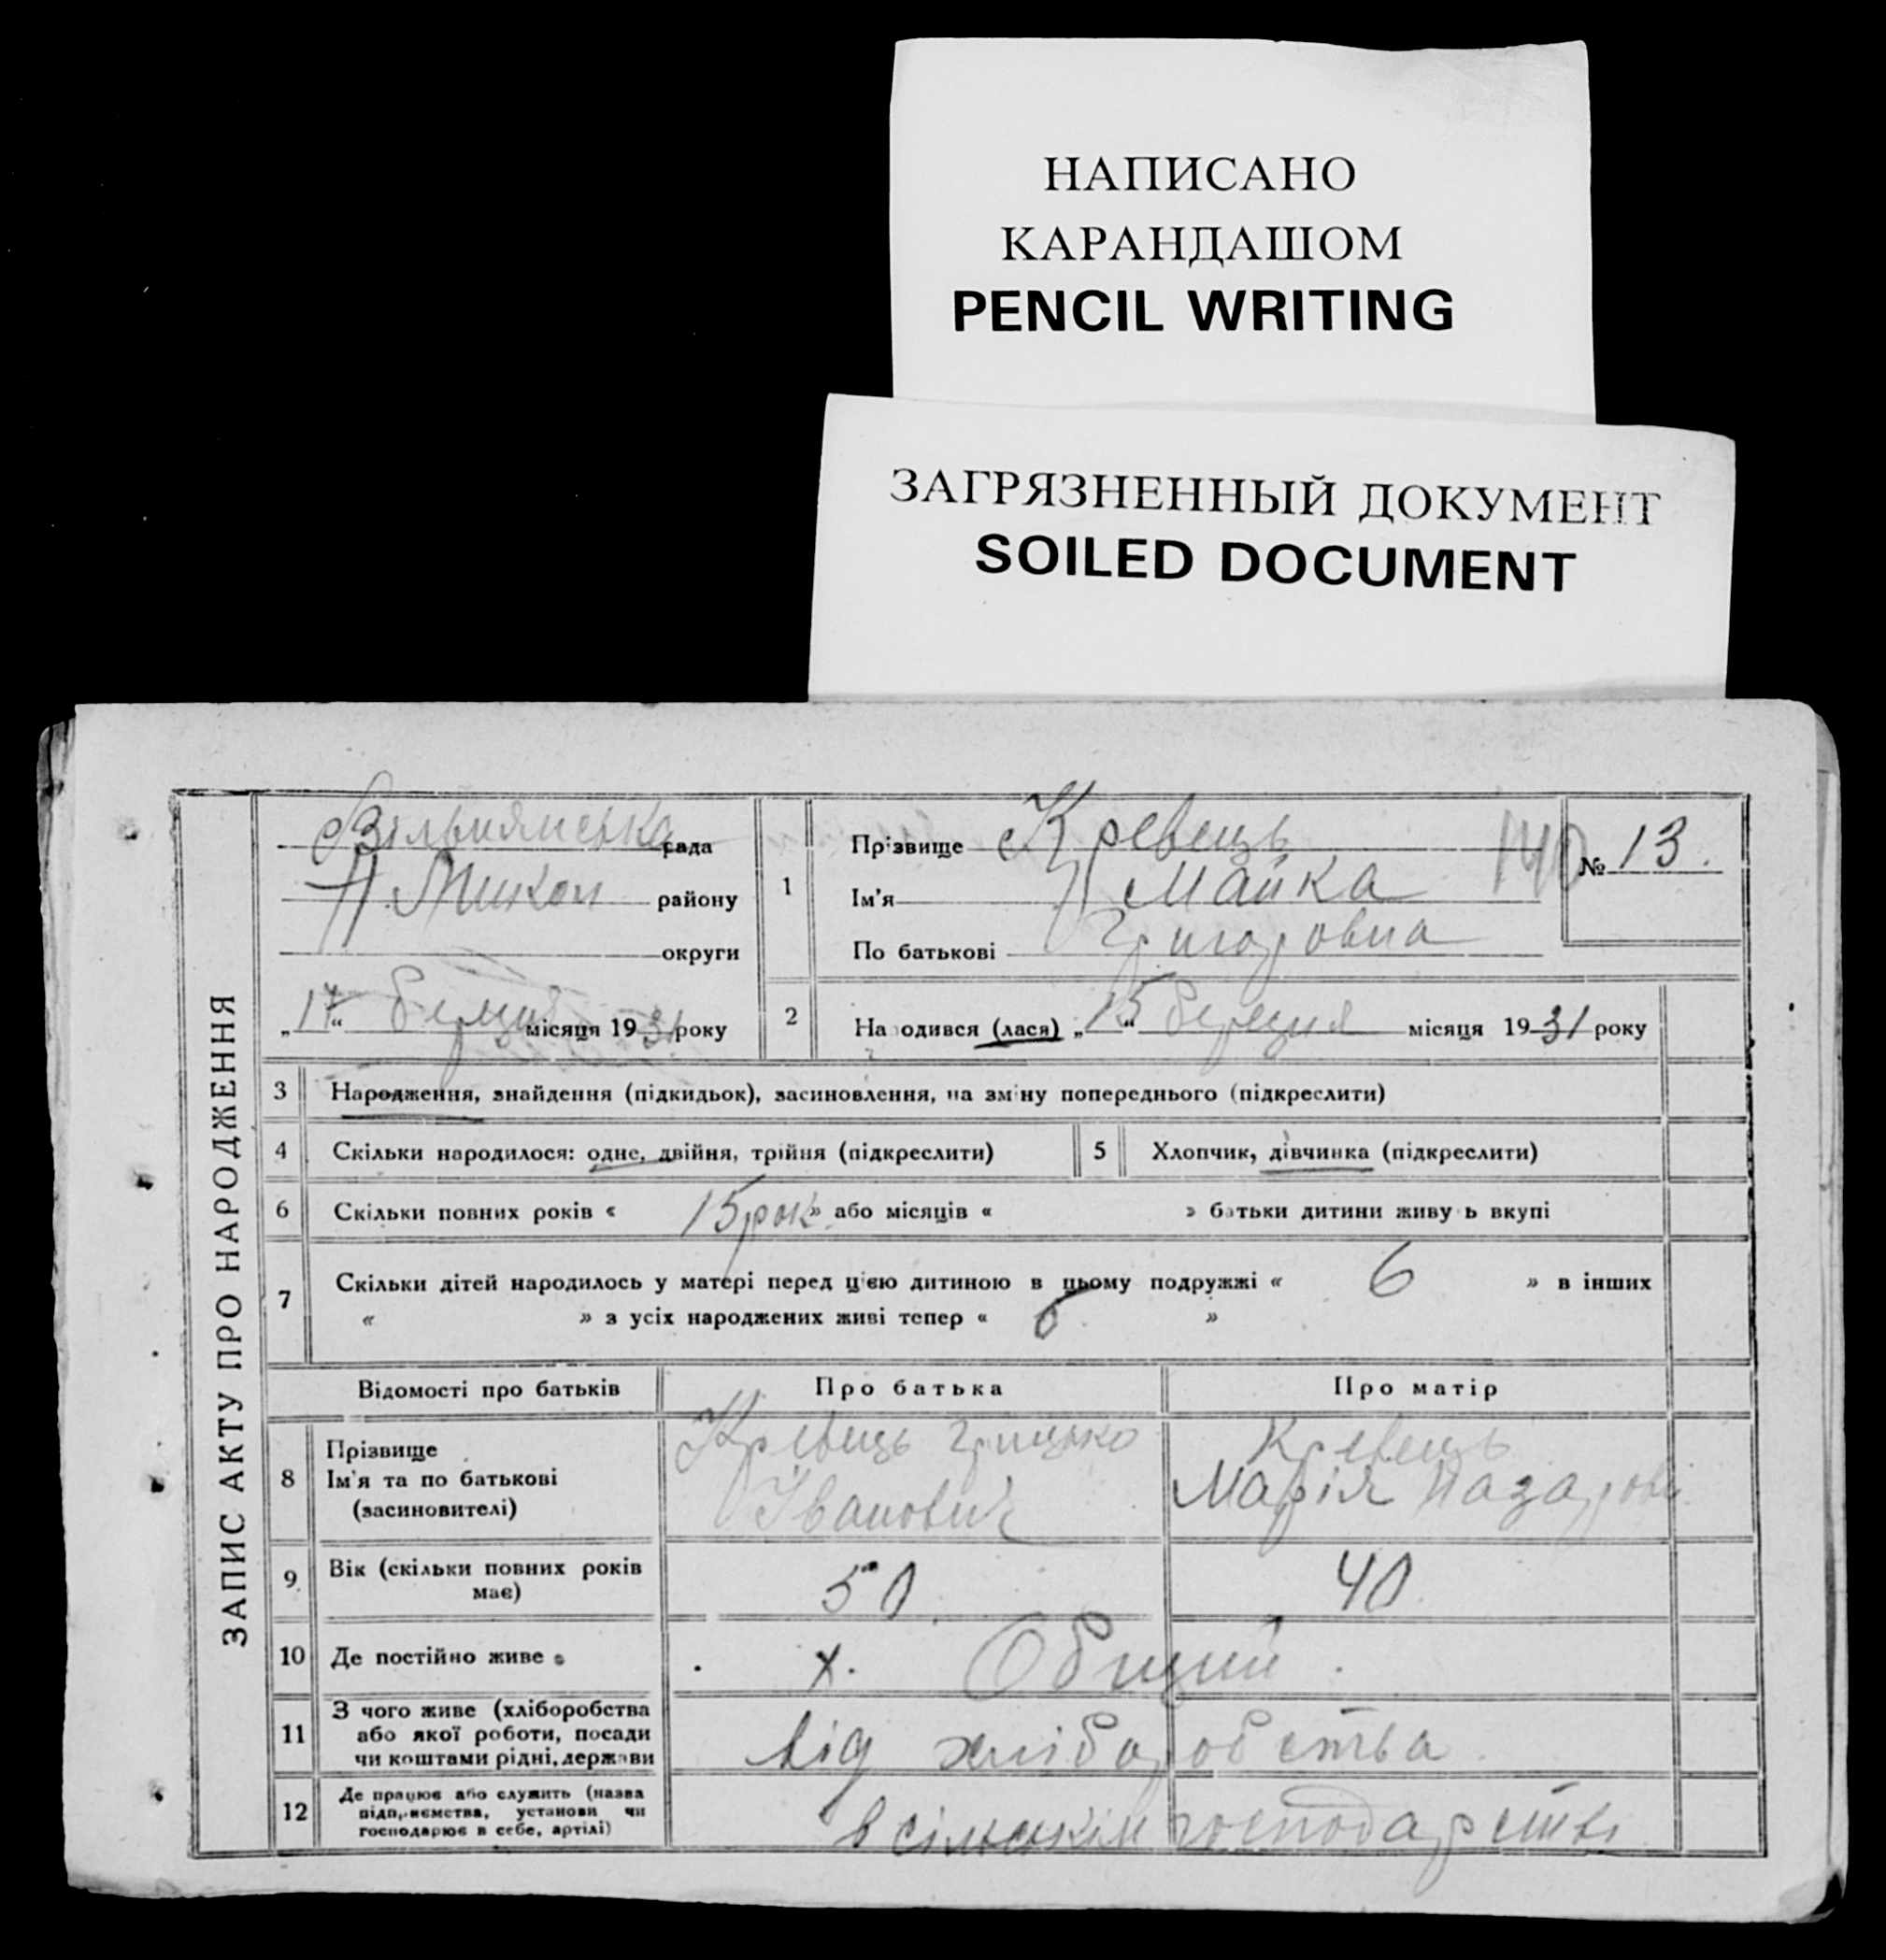 НАПИСАНО
КАРАНДАШОМ
PENCIL WRITING
ЗАГРЯЗНЕННЫЙ ДОКУМЕНТ
SOILED DOCUMENT
ЗАПИС АКТУ ПРО НАРОДЖЕННЯ
рада
району
округи
„17“ березня місяця 1931 року
1
Прізвище Кревець
Ім'я Майка
По батькові Григоровна
140
№ 13.
2 Народився (лася) „15“ березня місяця 1931 року
3 Народження, знайдення (підкидьок), засиновлення, на зміну попереднього (підкреслити)
4 Скільки народилося: одне, двійня, трійня (підкреслити)
5 Хлопчик, дівчинка (підкреслити)
6 Скільки повних років « 15 рок » або місяців « » батьки дитини живуть вкупі
7 Скільки дітей народилось у матері перед цією дитиною в цьому подружжі « 6 » в інших
« » з усіх народжених живі тепер « 6 »
Відомості про батьків Про батька Про матір
8 Прізвище
Ім'я та по батькові
(засиновителі)
Кревець Грицько
Іванович
Кревець
Марія Назарові
9 Вік (скільки повних років
має)
50.
40.
10 Де постійно живе х. Общий.
11 З чого живе (хліборобства
або якої роботи, посади
чи коштами рідні, держави
від хліборобства
12 Де працює або служить (назва
підприємства, установи чи
господарює в себе, артілі)
в сільськім господарстві